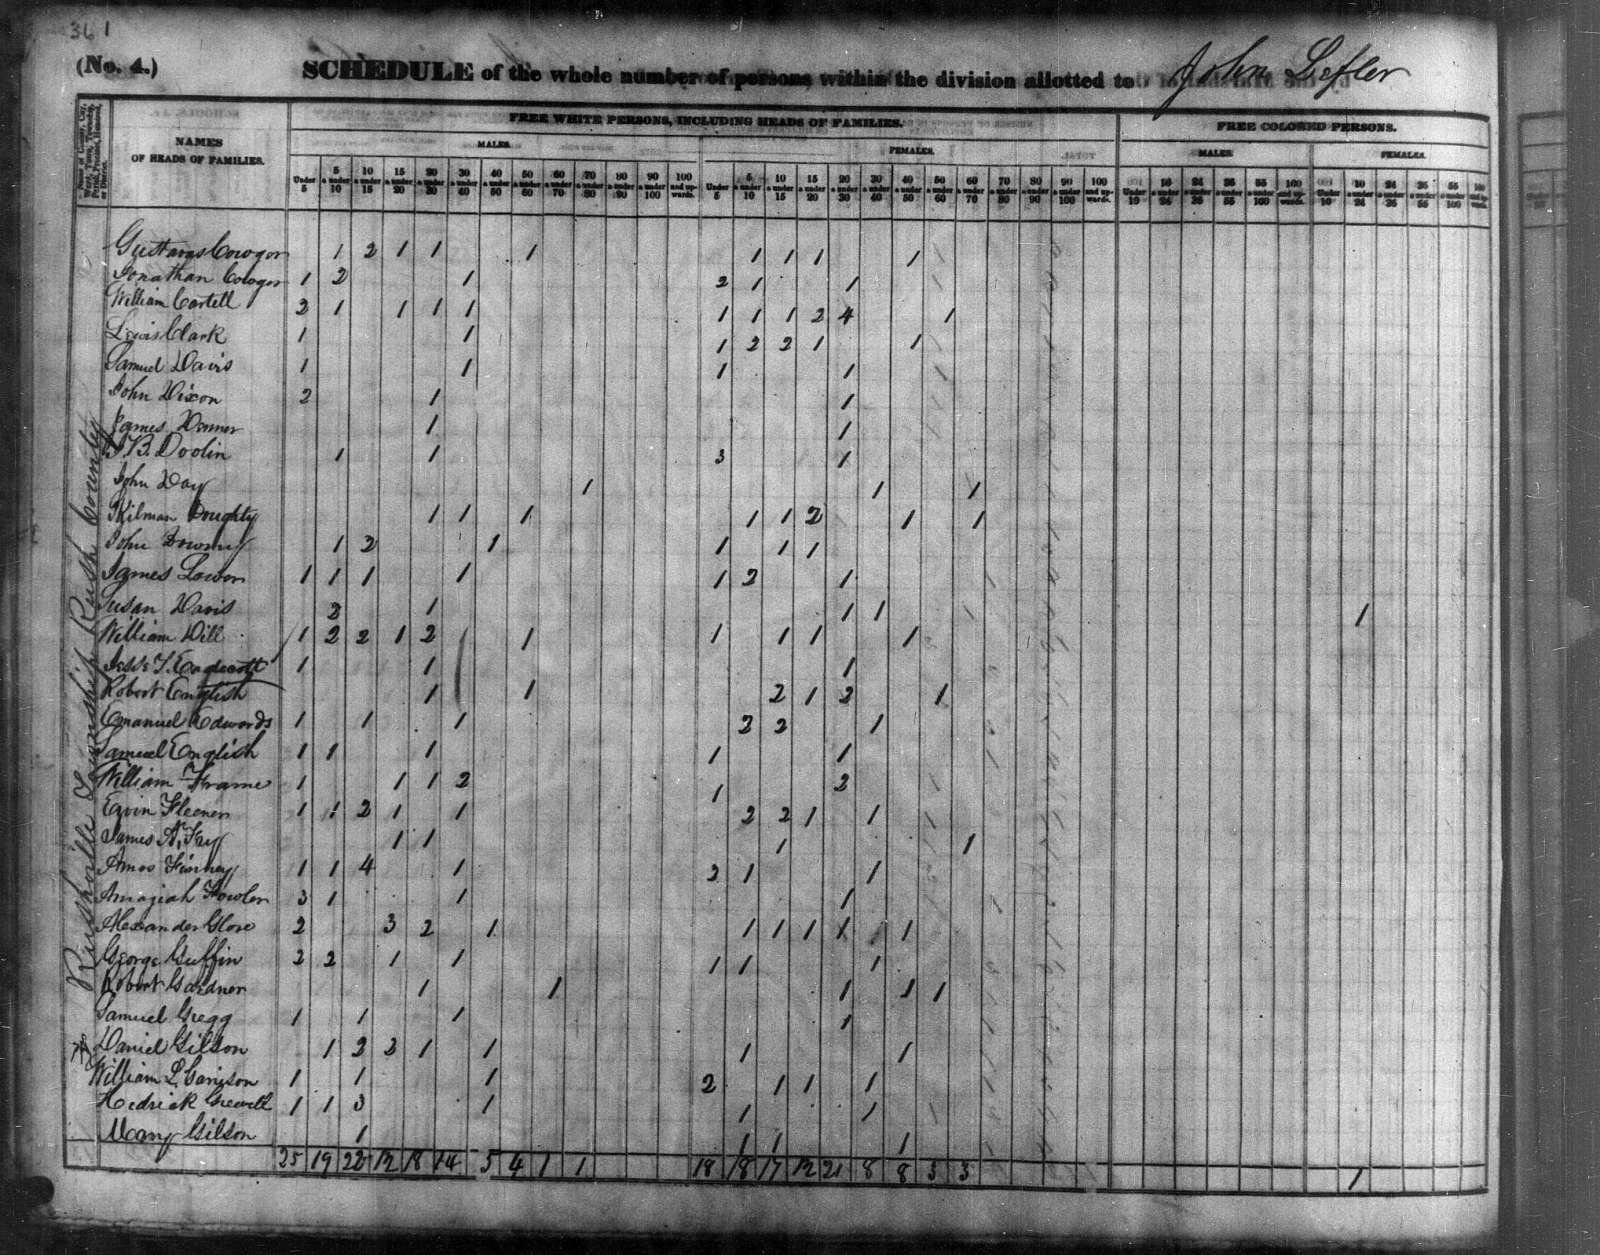 361
(No. 4.)
SCHEDULE of the whole number of persons within the division allotted to John Lefler
NAMES OF HEADS OF FAMILIES.
FREE WHITE PERSONS, INCLUDING HEADS OF FAMILIES.
FREE COLORED PERSONS.
MALES. FEMALES. MALES. FEMALES.
Under 5 5 & under 10 10 & under 15 15 & under 20 20 & under 30 30 & under 40 40 & under 50 50 & under 60 60 & under 70 70 & under 80 80 & under 90 90 & under 100 100 and upwards.
Under 5 5 & under 10 10 & under 15 15 & under 20 20 & under 30 30 & under 40 40 & under 50 50 & under 60 60 & under 70 70 & under 80 80 & under 90 90 & under 100 100 and upwards.
Under 10 10 & under 24 24 & under 36 36 & under 55 55 & under 100 100 and upwards.
Under 10 10 & under 24 24 & under 36 36 & under 55 55 & under 100 100 and upwards.
Rushville Township Rush County
Gustavas Cowger 1 2 1 1 1 1 1 1 1
Jonathan Cowger 1 2 1 2 1 1
William Cortell 2 1 1 1 1 1 1 1 2 4 1
Lewis Clark 1 1 1 2 2 1 1
Samuel Davis 1 1 1 1
John Dixon 2 1 1
James Denner 1 1
J. B. Doolin 1 1 3 1
John Day 1 1 1
Doughty 1 1 1 1 1 2 1 1
John Downey 1 2 1 1 1 1
James Lower 1 1 1 1 1 2 1
Susan Davis 2 1 1 1 1
William Dill 1 2 2 1 2 1 1 1 1 1
Jesse T. Endecott 1 1 1
Robert English 1 1 2 1 2 1
Emanuel Edwards 1 1 1 2 2 1
Samuel English 1 1 1 1 1
William Frame 1 1 1 2 1 2
Ervin Fleener 1 1 2 1 1 2 2 1 1
James A. Fay 1 1 1 1
Amos Finney 1 1 4 1 2 1 1
Amaziah Fowler 3 1 1 1
Alexander Glore 2 3 2 1 1 1 1 1 1
George Guffin 2 2 1 1 1 1 1
Robert Gardner 1 1 1 1 1
Samuel Gregg 1 1 1 1
Daniel Gilson 1 2 2 1 1 1 1
William L. Garrison 1 1 1 2 1 1 1
Hedrick 1 1 3 1 1 1
Mary Gilson 1 1 1 1
25 19 22 12 18 14 5 4 1 1 18 18 17 12 21 8 8 3 3 1